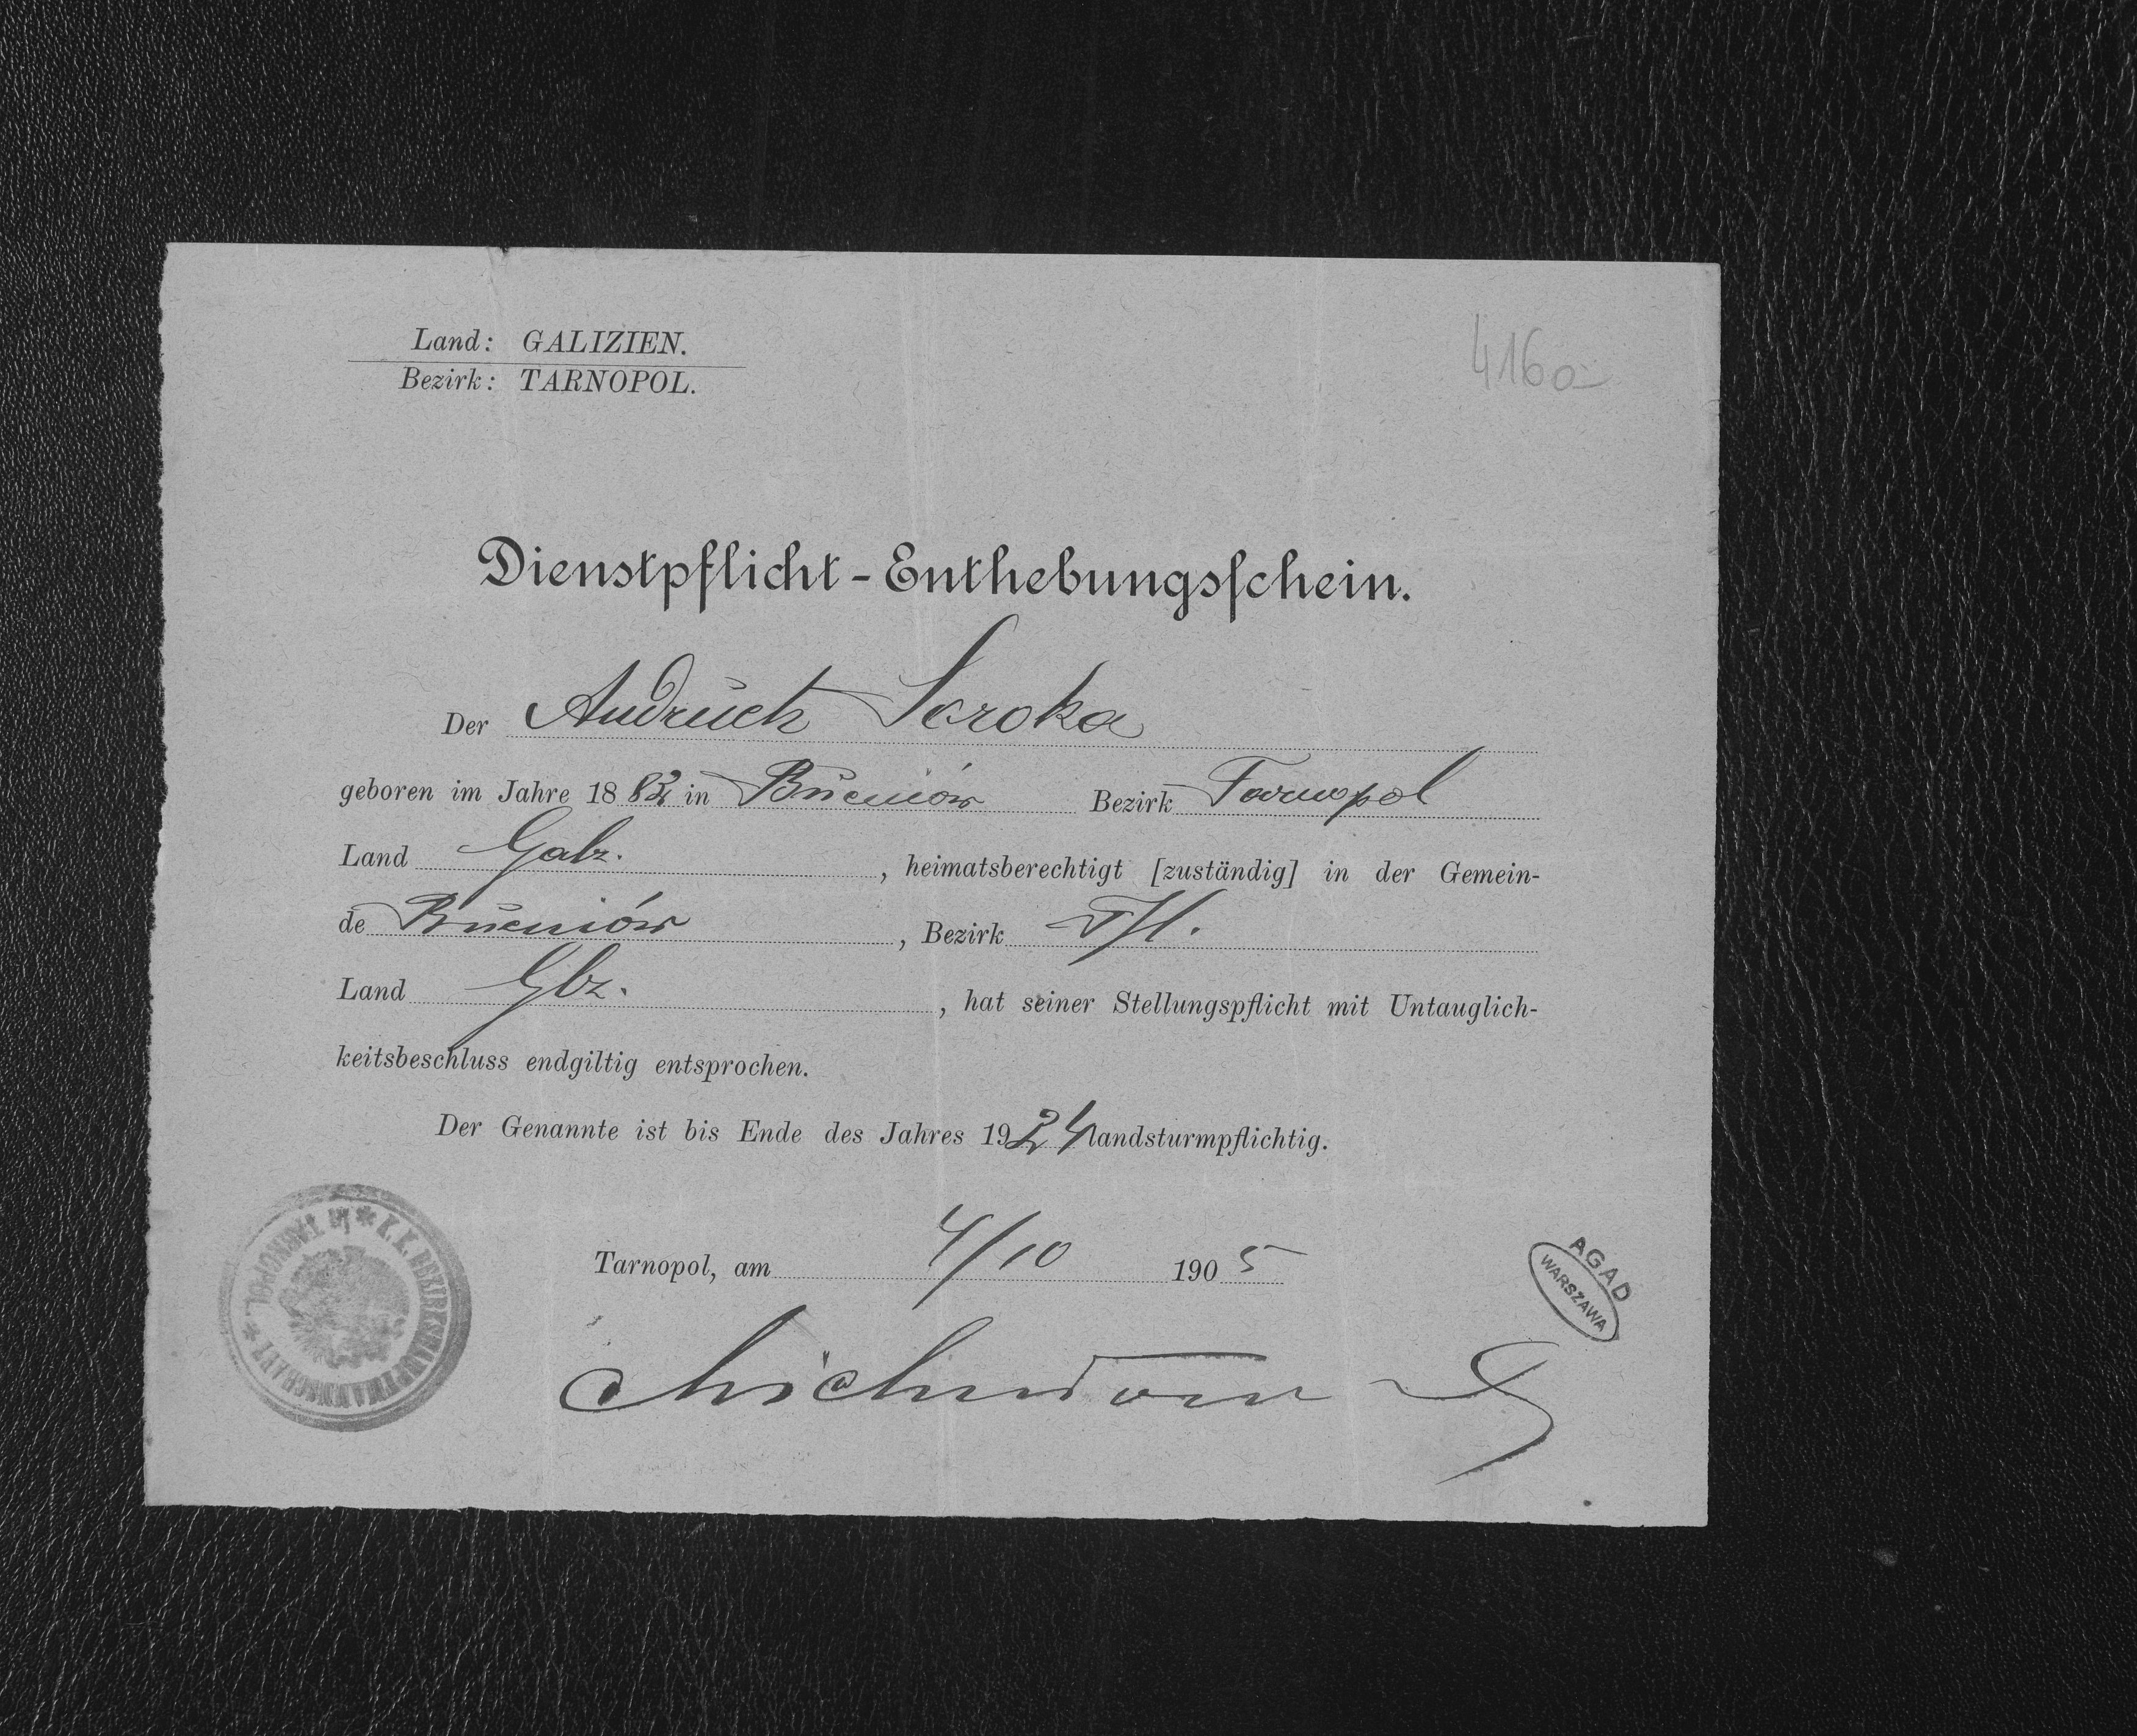 Land: GALIZIEN.
Bezirk: TARNOPOL.
416a
Dienstpflicht-Enthebungsschein.
Der Andruch Soroka
geboren im Jahre 1882 in Bucniów Bezirk Tarnopol
Land Galz. , heimatsberechtigt [zuständig] in der Gemein-
de Bucniów , Bezirk
Land Glz. , hat seiner Stellungspflicht mit Untauglich-
keitsbeschluss endgiltig entsprochen.
Der Genannte ist bis Ende des Jahres 1924 landsturmpflichtig.
Tarnopol, am 4/10 1905
K. K. BEZIRKSHAUPTMANNSCHAFT * in TARNOPOL *
AGAD
WARSZAWA